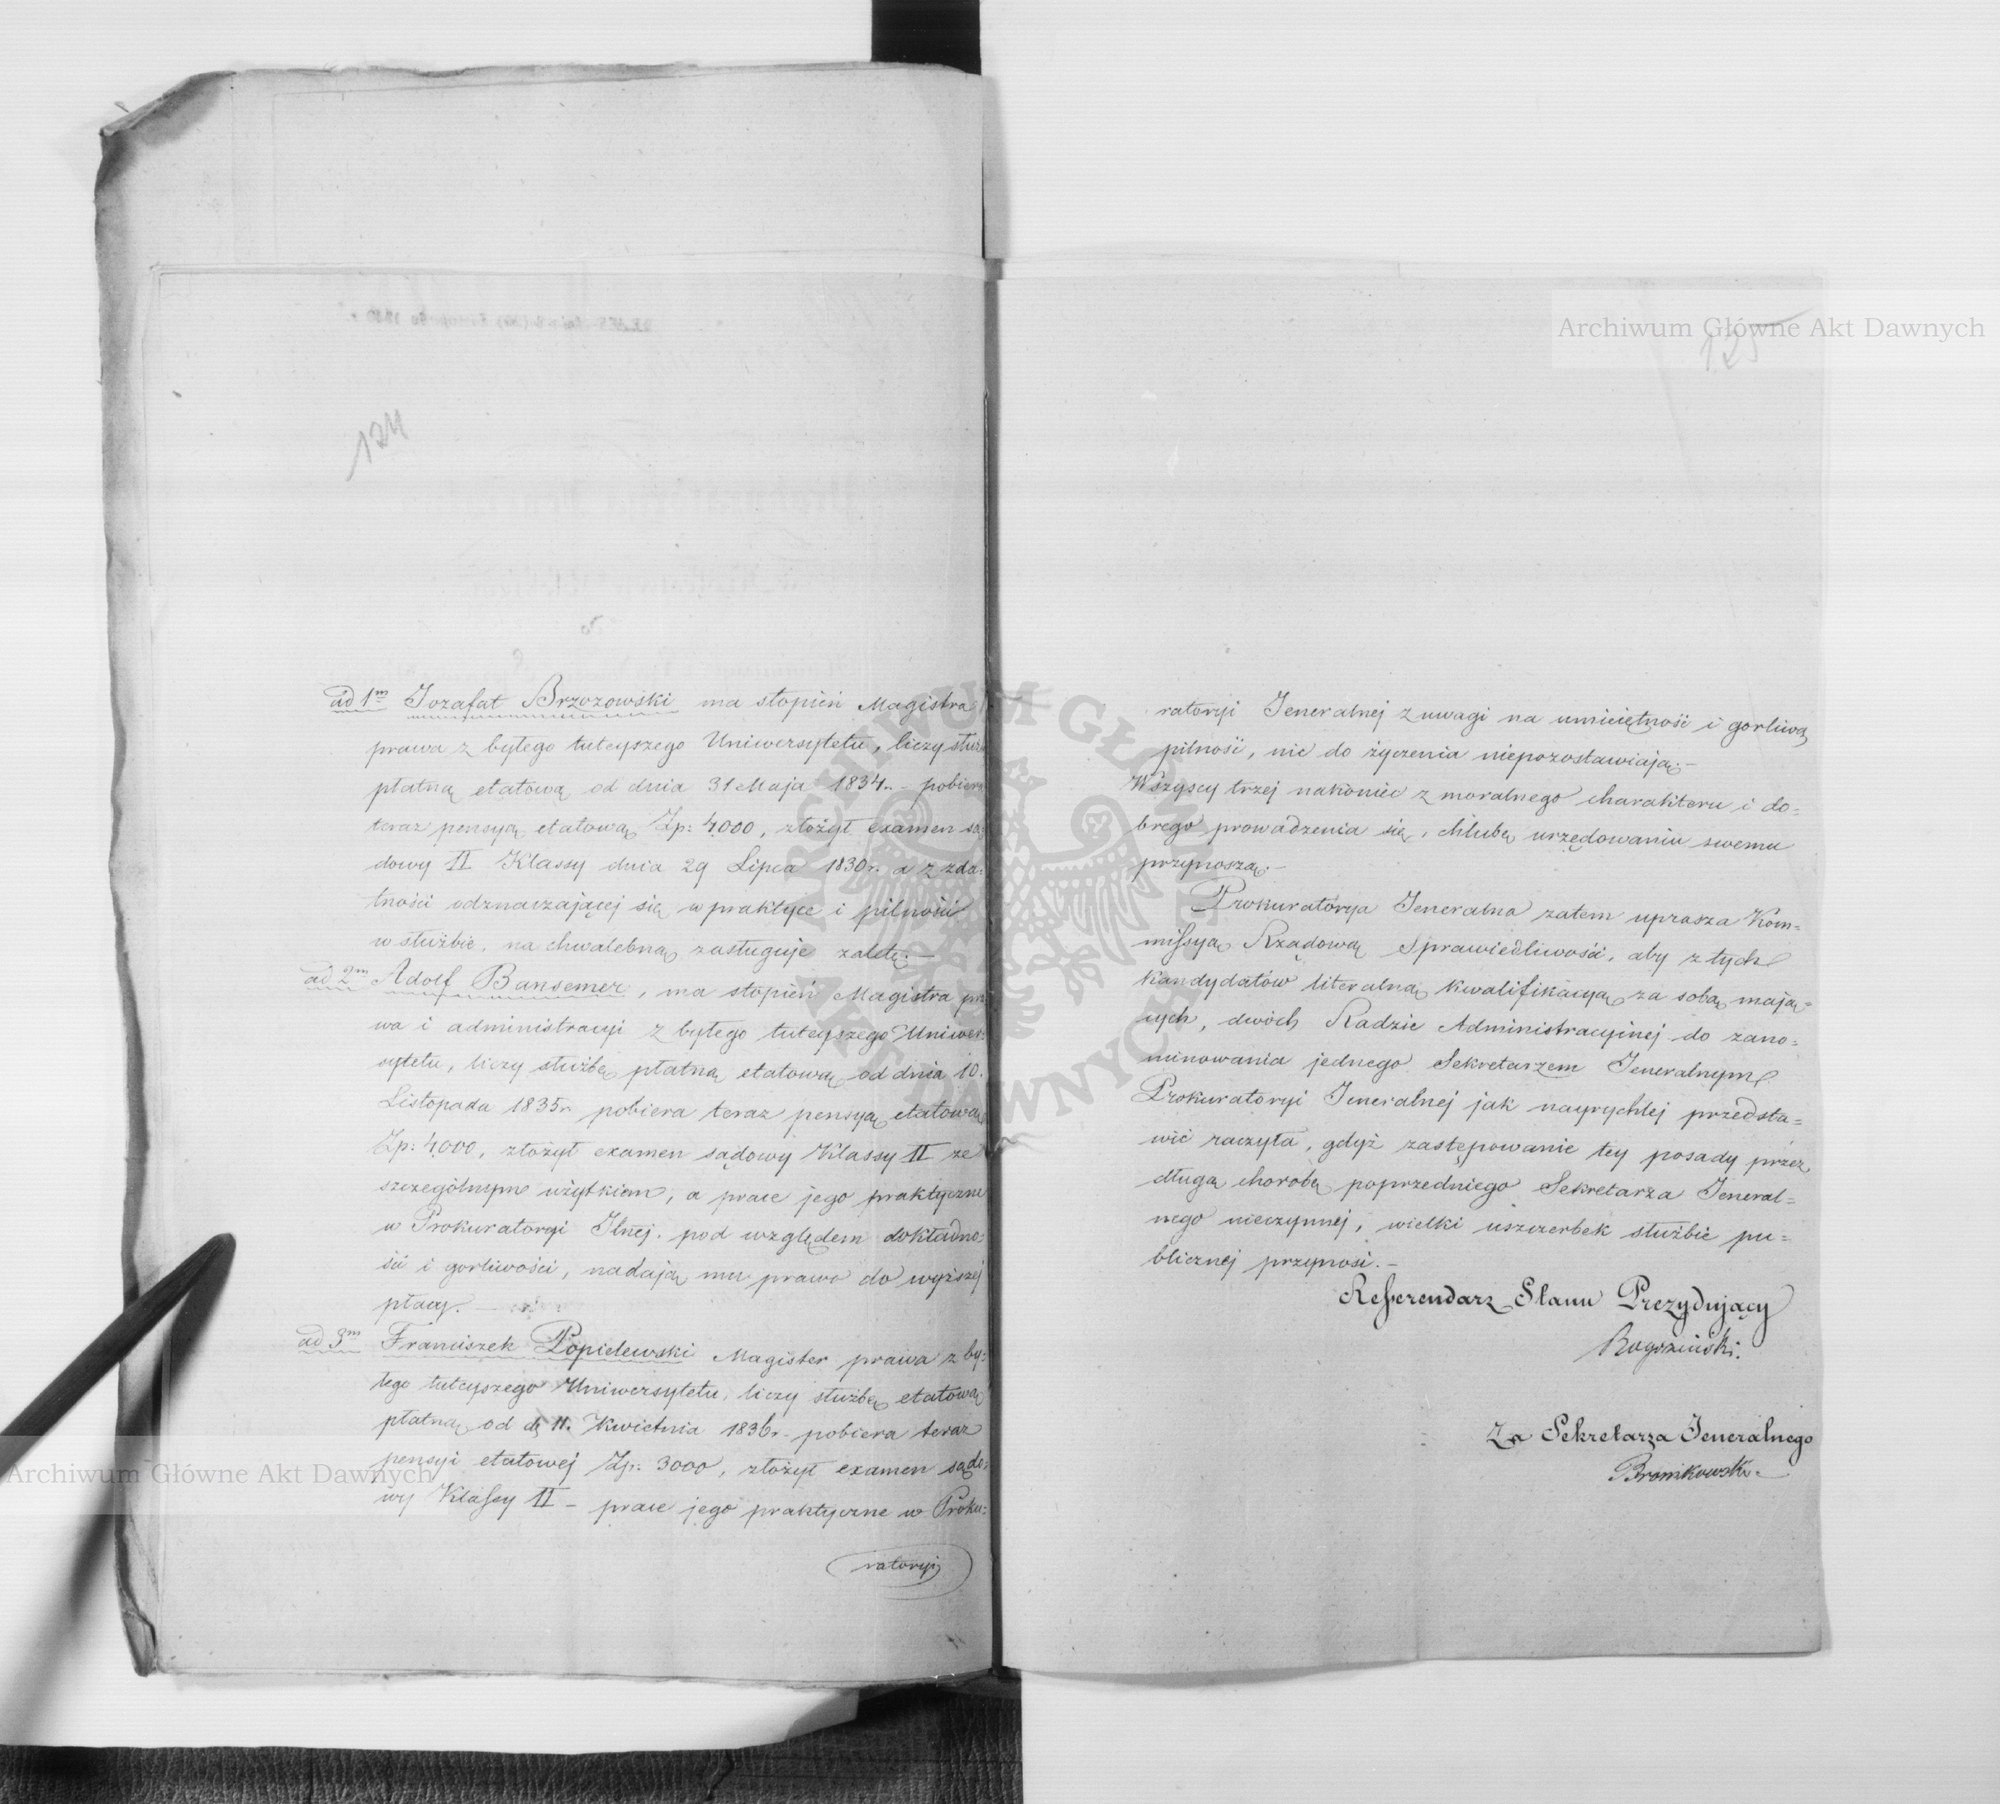 124
ad 1m Jozafat Brzozowski ma stopień Magistra
prawa z byłego tuteyszego Uniwersytetu, liczy służ
płatną etatową od dnia 31 Maja 1834 r. - pobiera
teraz pensyą etatową Zp: 4000, złożył examen są-
dowy II Klassy dnia 29 Lipca 1830 r. a z zda-
tności odznaczającej się w praktyce i pilności
w służbie, na chwalebną zasługuje zaletę. -
ad 2m Adolf Bansemer, ma stopień Magistra pra
wa i administracyi z byłego tuteyszego Uniwer-
sytetu, liczy służbę płatną etatową od dnia 10.
Listopada 1835 r. pobiera teraz pensyą etatową
Zp: 4000, złożył examen sądowy Klassy II ze
szczególnym użytkiem, a prace jego praktyczne
w Prokuratoryi Jlnej. pod względem dokładno-
ści i gorliwości, nadają mu prawo do wyższej
płacy. -
ad 3m Franciszek Popielewski Magister prawa z by-
łego tuteyszego Uniwersytetu, liczy służbę etatową
płatną od d. 11. Kwietnia 1836 r. pobiera teraz
pensyi etatowej Zp: 3000, złożył examen sądo-
wy Klassy II - prace jego praktyczne w Proku-
ratoryi
125
ratoryi Jeneralnej z uwagi na umiejętność i gorliwą
pilność, nic do życzenia niepozostawiają. -
Wszyscy trzej nakoniec z moralnego charakteru i do-
brego prowadzenia się, chlubę urzędowaniu swemu
przynoszą. -
Prokuratorya Jeneralna zatem uprasza Kom-
missyą Rządową Sprawiedliwości, aby z tych
kandydatów literalną kwalifikacyą za sobą mają-
cych, dwóch Radzie Administracyinej do zano-
minowania jednego Sekretarzem Jeneralnym
Prokuratoryi Jeneralnej jak nayrychlej przedsta-
wić raczyła, gdyż zastępowanie tey posady przez
długą chorobę poprzedniego Sekretarza Jeneral-
nego nieczynnej, wielki uszczerbek służbie pu-
blicznej przynosi. -
Referendarz Stanu Prezydujący
Za Sekretarza Jeneralnego
Bronikowski
Archiwum Główne Akt Dawnych
Archiwum Główne Akt Dawnych
ARCHIWUM GŁÓWNE AKT DAWNYCH